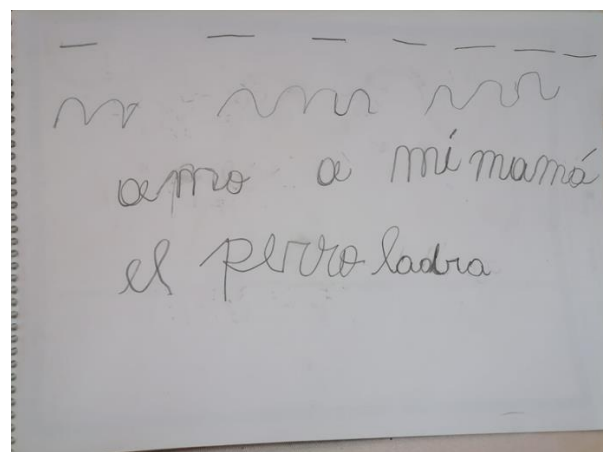 amo a mi mamá
el perro ladra